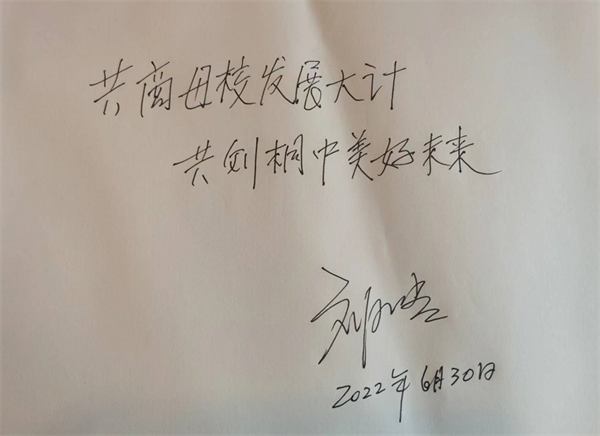 共商母校发展大计
共创桐中美好未来
刘
2022年6月30日